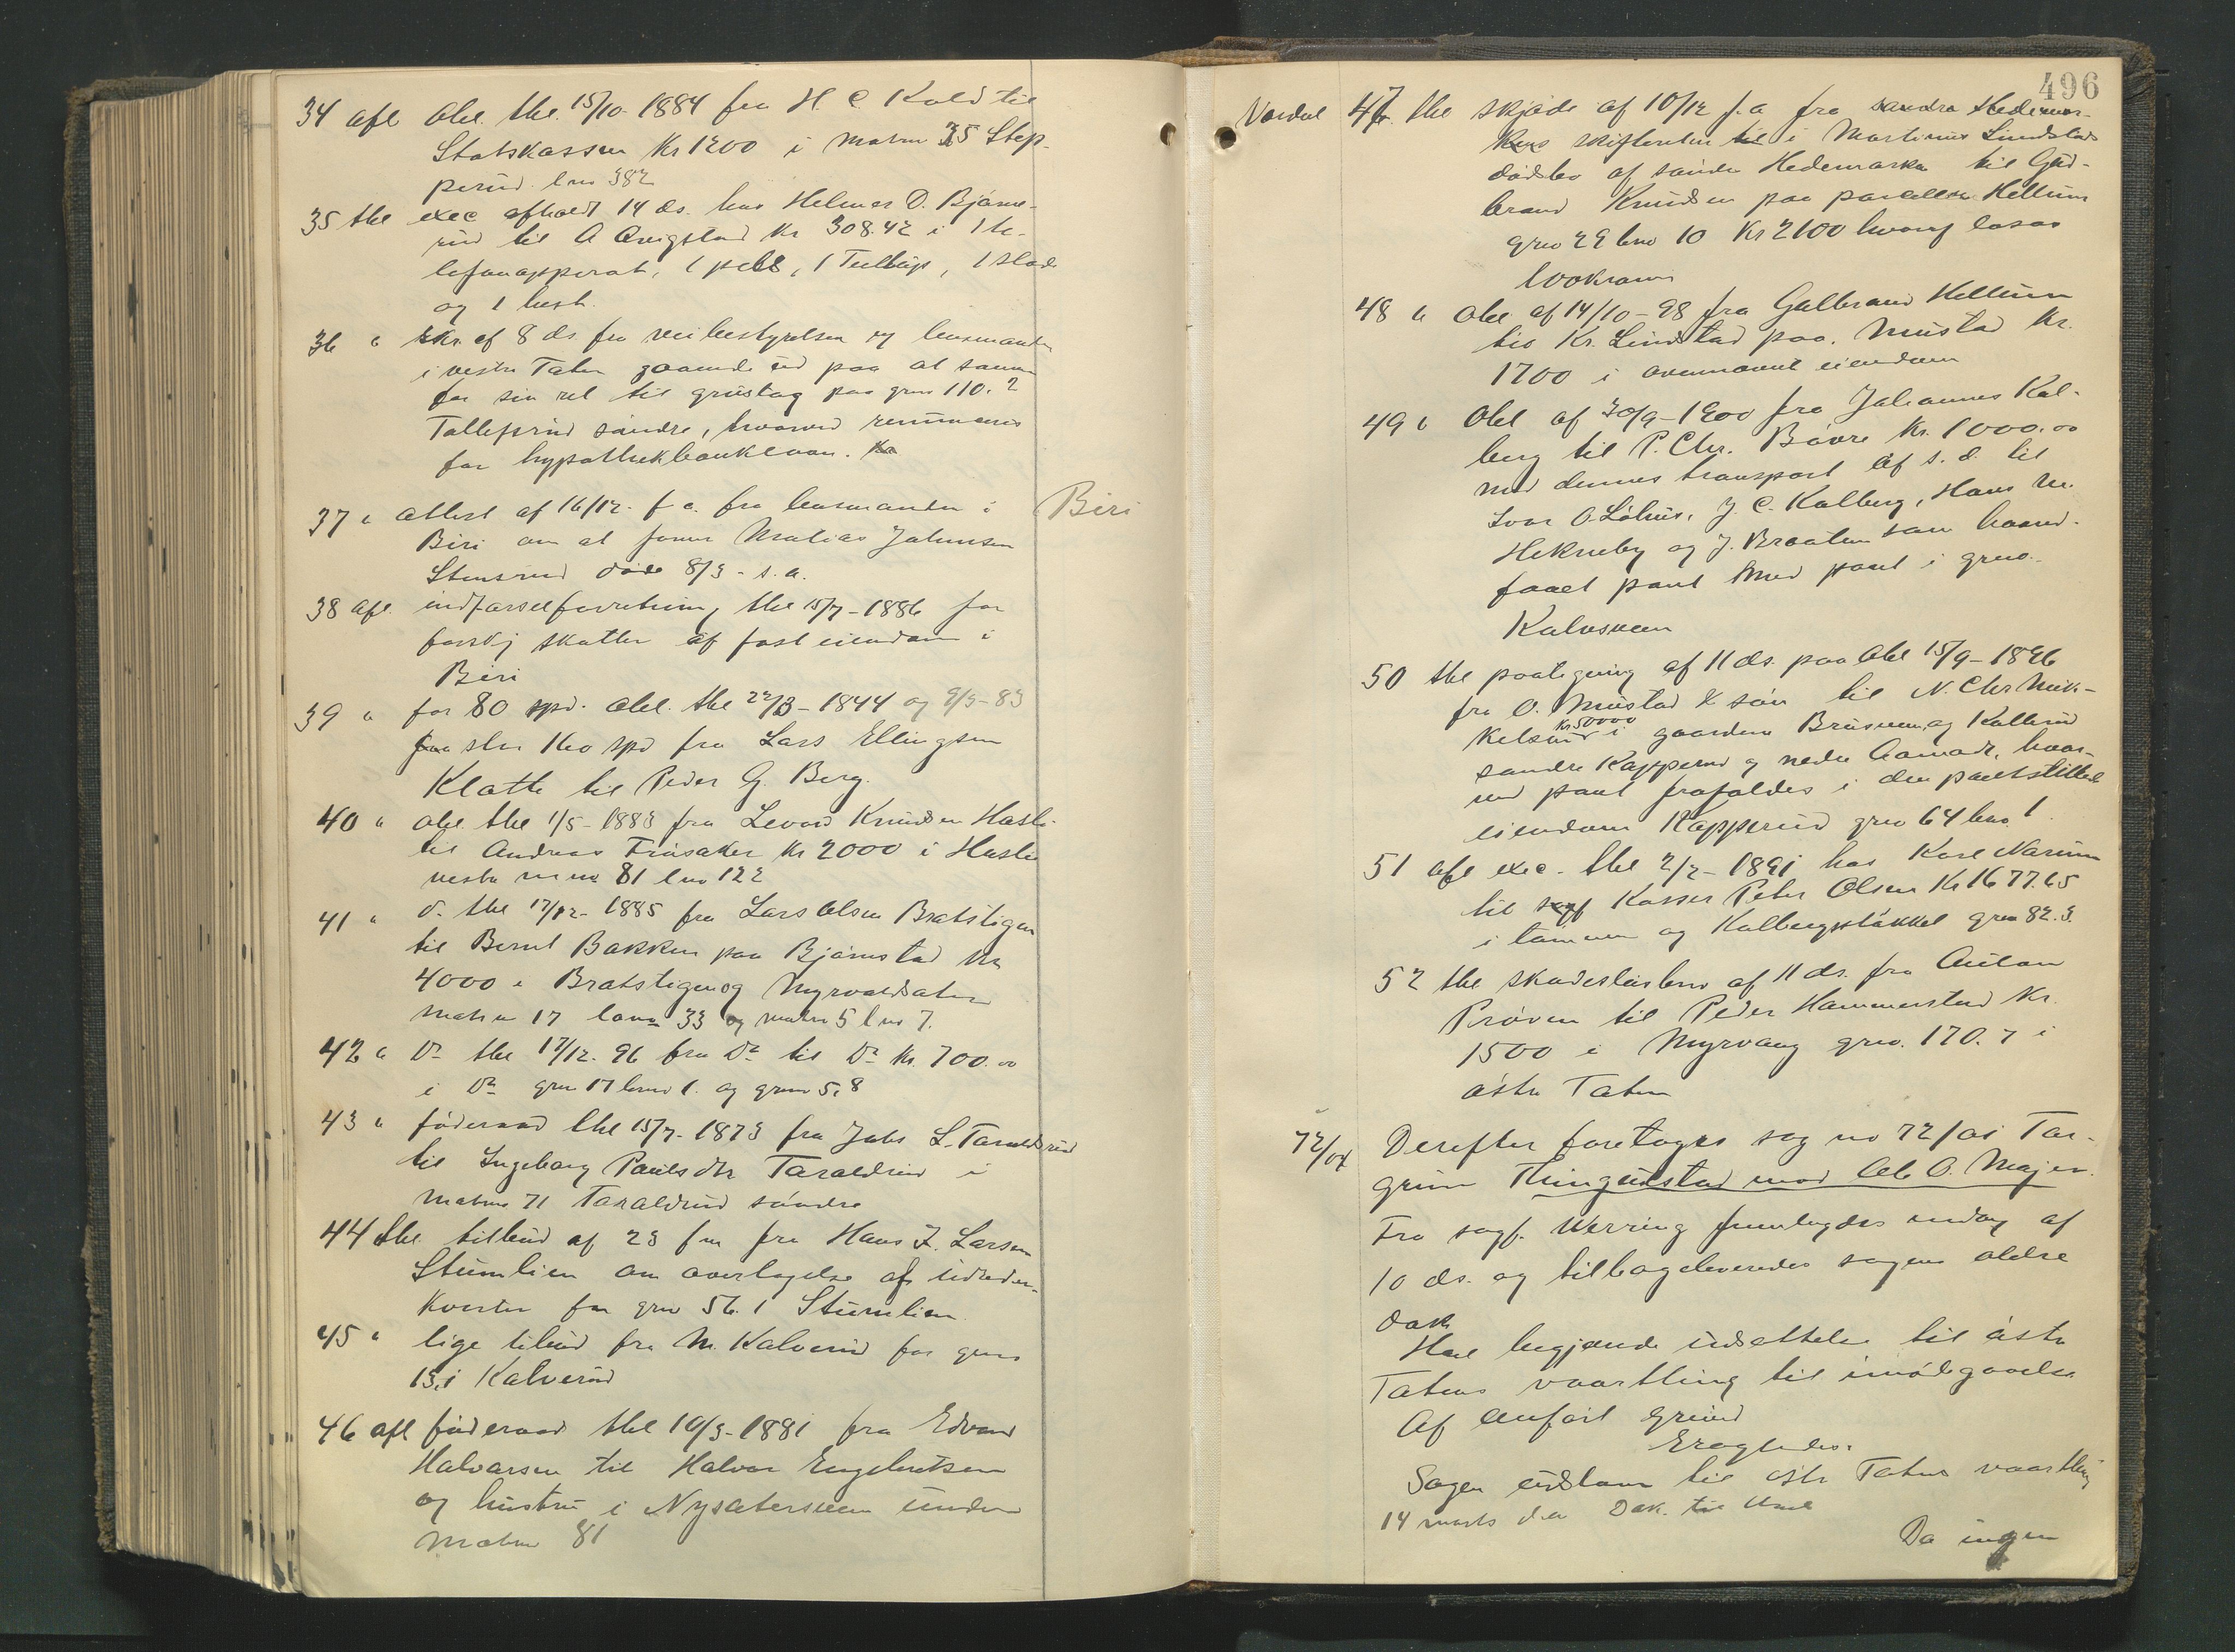 34 afl obl. thl. 15/10-1884 fra H C Kold til
Statskassen Kr 1200 i matrn 35 Step-
perud lno 382
35 thl exec afholdt 14 ds. hos Helmer O. Bjørne-
rud til A Qvigstad Kr 308.42 i 1 te-
lefonapperat, 1 pels, 1 Tullup, 1 slæde
og 1 hest.
36 " skr. af 8 ds. fra veibestyrelsen og lensmanden
i vestre Toten gaaende ud paa at samme
for sin ret til grustag paa gno 110.2
Tollefsrud søndre, hvorved
for hypothekbanklaan.
37 " attest af 16/12 f. a. fra lensmanden i Biri
Biri om at forn Matias Johnsen
Stensrud døde 8/3 - s. a.
38 afl. indførselforretning thl 15/7-1886 for
forskj skatter af fast eiendom i
Biri
39 " for 80 spd. obl. thl 22/3-1844 og 9/3-83
stor 160 spd fra Lars Ellingsen
Klatte til Peder G. Berg.
40 " obl. thl 1/5-1883 fra Levord Knudsen Hasli
til Andreas Frøsaker Kr 2000 i Hasli
vestre mno 81 lno 122
41 " do. thl 17/12-1885 fra Lars Olsen Bratstigen
til Bernt Bakken paa Bjørnstad Kr
4000 i Bratstigen og Myrvoldsæteren
matrn 17 lono 33 og matrn 5 lno 7.
42 " Do thl 17/12-96 fra Do til Do Kr. 700.00
i Do gno 17 bno 1. og gno 5,8
43 " føderaad thl 15/7-1873 fra Johs L. Taraldsrud
til Ingeborg Paulsdtr Taraldrud i
matrn 71 Taraldrud søndre
44 thl tilbud af 23 f m fra Hans J. Larsen
Stumlien om overtagelse af udreder-
kvoten for gno 56.1 Stumlien
45 " lige tilbud fra M. Kalverud for gno
13,1 Kalverud
46 afl føderaad thl 10/3-1881 fra Edvard
Halvorsen til Halvor Engebretsen
og hustru i Nysætersveen under
matrn 81
496
Vardal 47. thl skjøde af 10/12 f. a fra søndre Hedemar-
kens skifteretten i Martinus Lindstads
dødsbo af søndre Hedemarken til Gud-
brand Knudsen paa parcellen Hellum
gno 29 bno 10 Kr 2100 hvoraf løsøre
100 kroner
48 " obl af 14/10-98 fra Gulbrand Hellum
til Kr. Lindstad paa Mustad Kr.
1700 i ovennævnt eiendom
49 " Obl af 30/9-1900 fra Johannes Kol-
berg til P. Chr. Bøvre Kr. 1000.00
med dennes transport af s. d. til
Ivar O. Løhus, J. C. Kolberg, Hans M.
Hekneby og J. Braaten som haand-
faaet pant med pant i gno
Kalvsveen
50 thl paategning af 11 ds. paa Obl 15/9-1896
fra O. Mustad & søn til N. Chr Mik-
kelsen Kr 50000 i gaardene Brusveen og Kallerud
søndre Kapperud og nedre Aamodt, hvor-
ved pant frafaldes i den pantstillede
eiendom Kapperud gno 64 bno 1.
51 afl exec. thl 2/2-1891 hos Karl Narum
til sagf Kasser Peter Olsen Kr 1677.65
i tømmer og Kolbergsløkkel gno 82.3.
52 thl skadesløsbrev af 11 ds. fra Anton
Prøven til Peder Hammerstad Kr.
1500 i Myrvang gno. 170.7 i
østre Toten
72/01 Derefter foretoges sag no 72/01 Tor-
grim Ringudstad mod Ole O. Majer.
Fra sagf. Werring fremlagdes indlæg af
10 ds. og tilbageleveredes sagens ældre
dok
Han begjærede udsættelse til østre
Totens vaarthing til imødegaaelse
Af anført Grund
Eragtedes:
Sagen udstaar til østr Totens vaarthing
14 marts d. a Dok. til
Da ingen